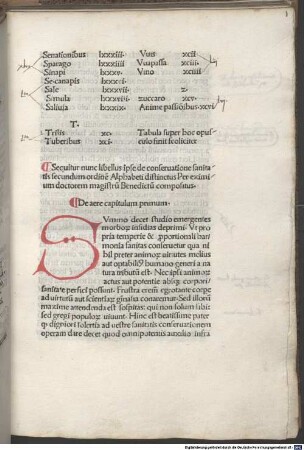 Serrationibus lxxxiii. Vuis xcii.
Sparago lxxxiiii Vuapassa xciii.
Sinapi lxxxv. Vino xciiii
Se canapis lxxxvi.
Sale lxxxvii z.
Simula lxxxviii. zuccaro xcv.
Saliuia lxxxix. Anime passiōibus. xcvi
T.
xc. Tabula super hoc opus
Tuberibus xci. culo finit feoliciter
¶ Sequitur nunc libellus ipse de conseruatione sanita
tis secundum ordinē Alphabeti distinctus Per eximi
um doctorem magistrū Benedictū compositus.
¶ De aere capitulum primum.
SVmmo decet studio emergentes
morboꝝ insidias deprimi. Vt pro
pria temperie & pportionali har
monia sanitas conseruetur qua ni
bil preter animoꝝ uirtutes melius
aut optabiliꝰ humano generi a na
tura tributū est. Nec ipsis animoꝝ
actus aut potentie absqꝫ corpori
sanitate perfici possunt. Frustra eremī egrotante corpe
ad uirtutū aut scientiaꝝ gīnasia conamur. Sed illoꝝ
maxime attendenda est sospitas: qui non solum sibi
sed gregi populoꝝ uiuunt. Hinc est beatissime pater
ꝙ digniori solertia ad uestre sanitatis conseruationem
operam dare decet quod omnipotens amelia infra